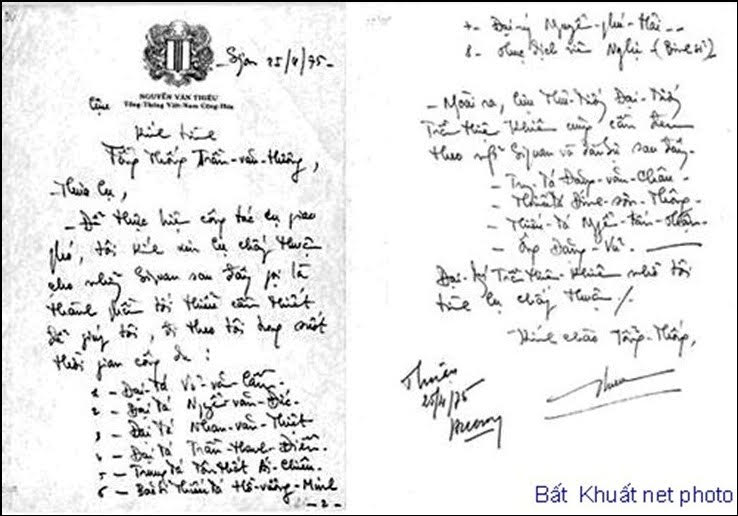 Sgon 25/4/75-
NGUYỄN VĂN THIỆU
Tổng-Thống Việt-Nam Cộng-Hòa
Kính trình
Tổng Thống Trần-văn-Hương,
-Thưa Cụ,
- Để thực hiện công tác Cụ giao
phó, tôi kính xin Cụ chấp thuận
cho những Sĩ quan sau đây gọi là
thành phần tối thiểu cần thiết
để giúp tôi, đi theo tôi trong suốt
thời gian công du:
1 - Đại tá Võ-văn-Cầm-
2 - Đại tá Nguyễn-văn-Đức-
3 - Đại tá Nhan-văn-Thiệt
4 - Đại tá Trần-thanh-Điền-
5 - Trung tá Tôn thất Ái-Chiêu-
6 - Bác sĩ Thiếu tá Hồ-vương-Minh
-2-
7 - Đại-úy Nguyễn-phú-Hải--
8 - Phục dịch viên Nghị (Binh sĩ)
- Ngoài ra, Cựu Thủ-Tướng Đại-Tướng
Trần Thiện Khiêm cũng cần đem
theo Sĩ quan và sau đây-
- Trung tá Đặng-văn-Châu-
- Thiếu tá Đinh-sơn-Thông-
- Thiếu-tá Nguyễn-tấn-
- Ông Đặng-Vũ-
Đại-tướng Trần-Thiện-Khiêm nhờ tôi
trình Cụ chấp thuận /.
Kính chào Tổng-Thống,
Thuận
25/4/75
Hương
Bất Khuất net photo